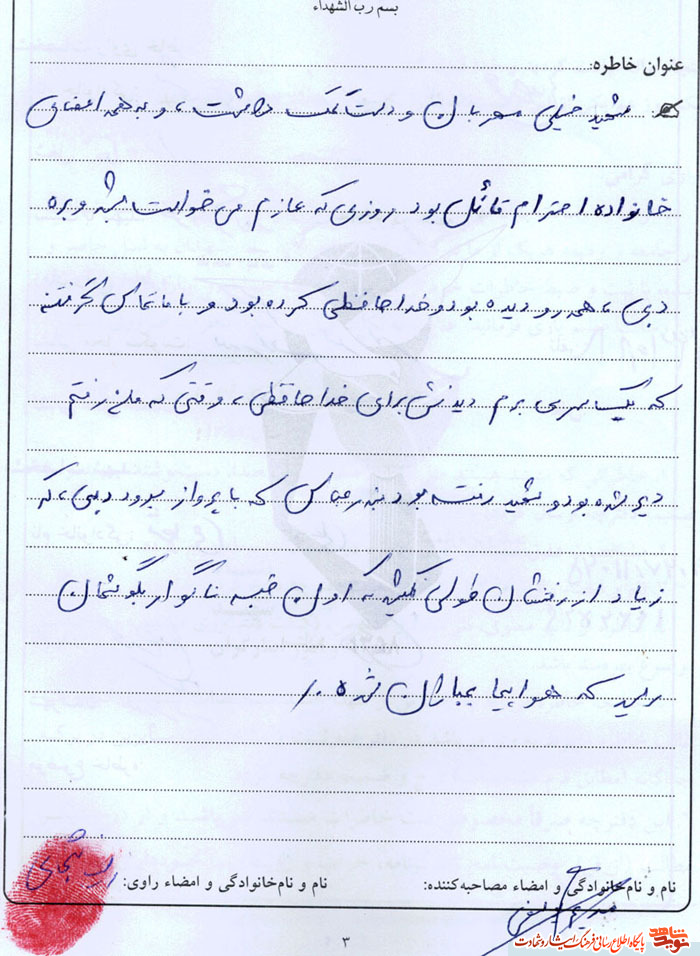 بسم رب الشهداء
عنوان خاطره:
شهید خیلی مهربان و دست کمک داشت، و به همه اعضای
خانواده احترام قائل بود روزی که عازم می خواست بشه و بره
دبی، همه رو دیده بود و خداحافظی کرده بود و با ما تماس گرفتند
که یک سری برم دیدنش برای خداحافظی، وقتی که من رفتم
دیر شده بود و شهید رفته بود بندرعباس که با پرواز برود دبی، که
زیاد از رفتشان طولی نکشید که اون خبر ناگوار بگوشمان
رسید که هواپیما بمباران شده
نام و نام‌خانوادگی و امضاء مصاحبه‌کننده:
نام و نام‌خانوادگی و امضاء راوی:
۳
نوید شاهد
پایگاه اطلاع رسانی فرهنگ ایثار و شهادت